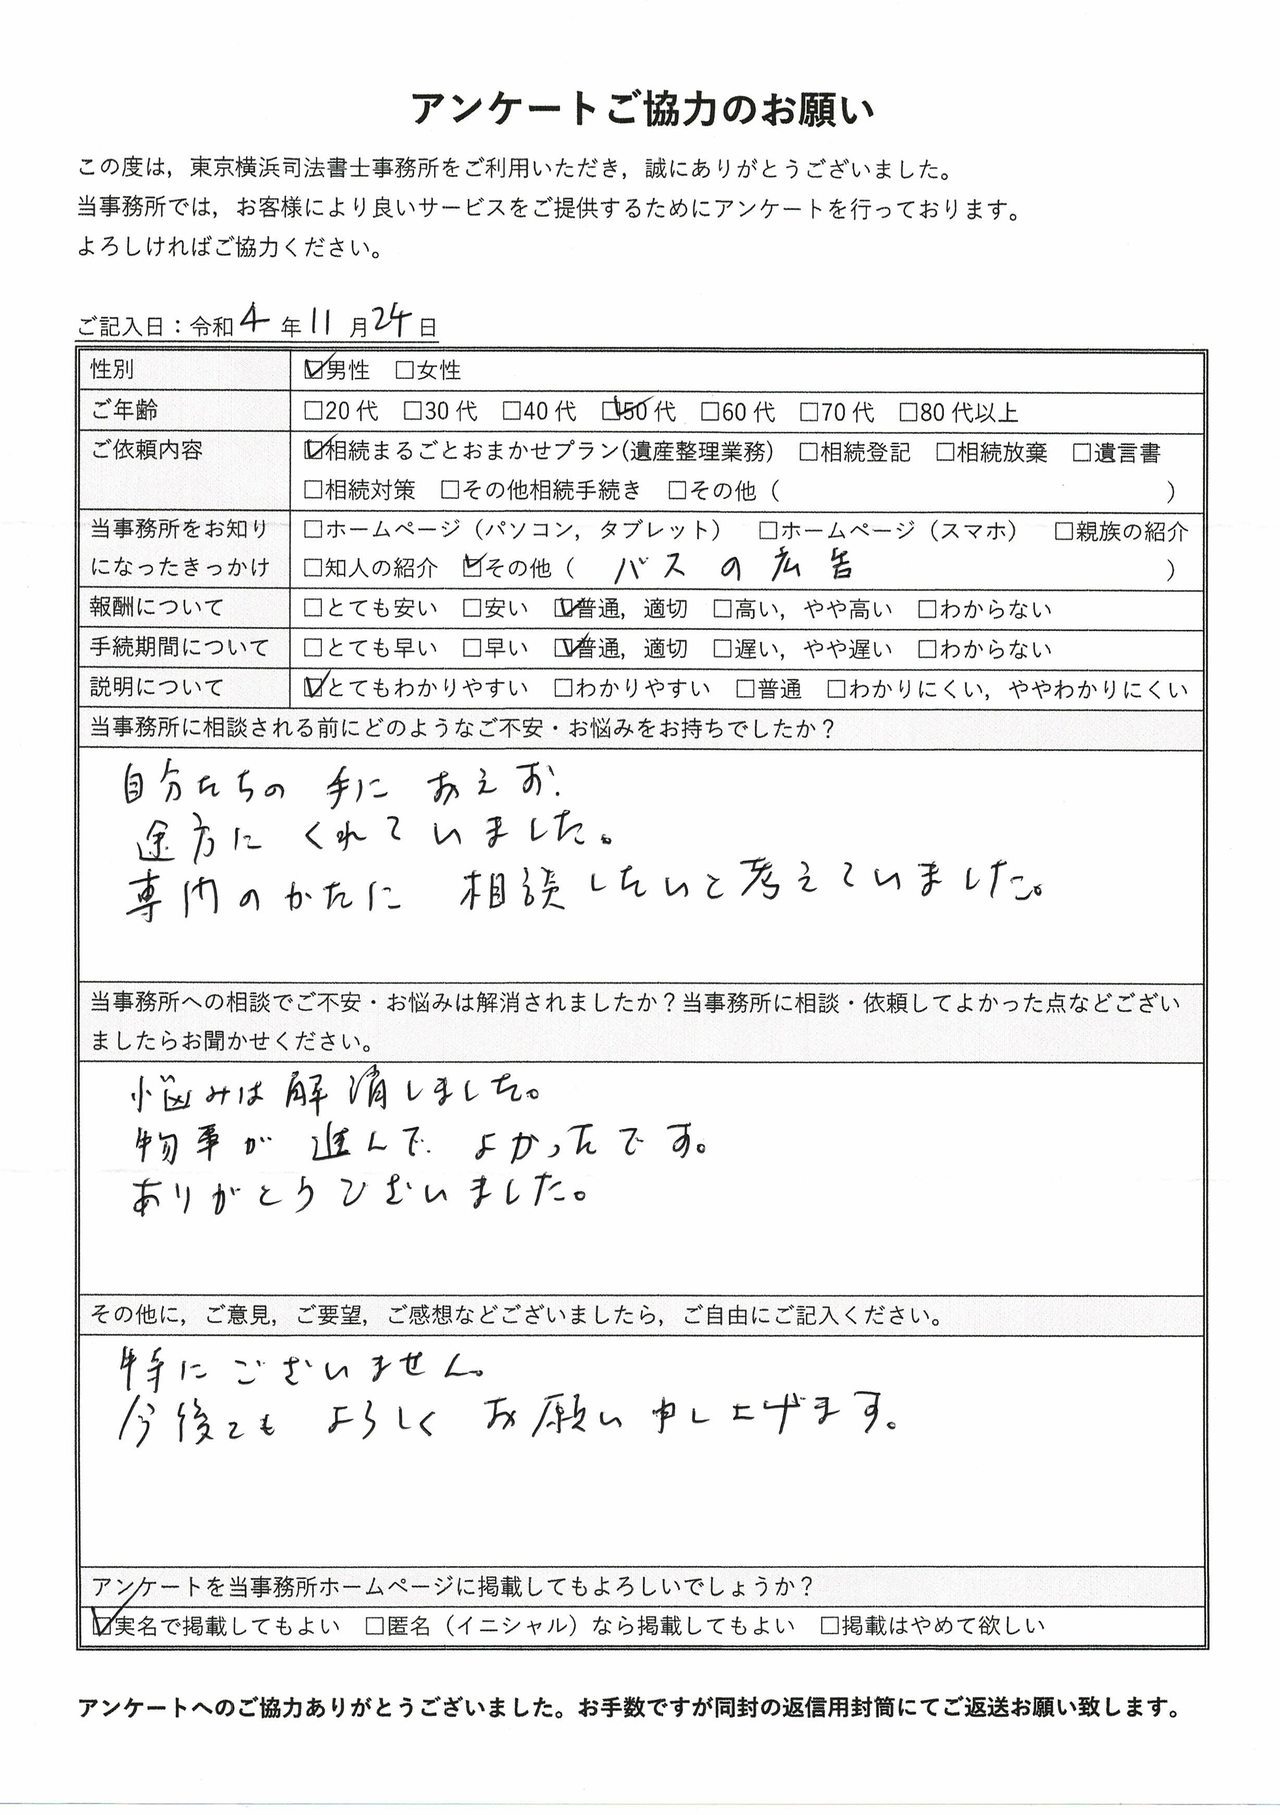 アンケートご協力のお願い
この度は，東京横浜司法書士事務所をご利用いただき，誠にありがとうございました。
当事務所では，お客様により良いサービスをご提供するためにアンケートを行っております。
よろしければご協力ください。
ご記入日：令和4年11月24日
性別 ☑男性 □女性
ご年齢 □20代 □30代 □40代 ☑50代 □60代 □70代 □80代以上
ご依頼内容 ☑相続まるごとおまかせプラン(遺産整理業務) □相続登記 □相続放棄 □遺言書
□相続対策 □その他相続手続き □その他（ ）
当事務所をお知り □ホームページ（パソコン，タブレット） □ホームページ（スマホ） □親族の紹介
になったきっかけ □知人の紹介 ☑その他（ バスの広告 ）
報酬について □とても安い □安い ☑普通，適切 □高い，やや高い □わからない
手続期間について □とても早い □早い ☑普通，適切 □遅い，やや遅い □わからない
説明について ☑とてもわかりやすい □わかりやすい □普通 □わかりにくい，ややわかりにくい
当事務所に相談される前にどのようなご不安・お悩みをお持ちでしたか？
自分たちの 手に おえず、
途方に くれていました。
専門のかたに 相談したいと考えていました。
当事務所への相談でご不安・お悩みは解消されましたか？当事務所に相談・依頼してよかった点などござい
ましたらお聞かせください。
悩みは解消しました。
物事が 進んで よかったです。
ありがとうございました。
その他に，ご意見，ご要望，ご感想などございましたら，ご自由にご記入ください。
特にございません。
今後とも よろしく お願い申し上げます。
アンケートを当事務所ホームページに掲載してもよろしいでしょうか？
☑実名で掲載してもよい □匿名（イニシャル）なら掲載してもよい □掲載はやめて欲しい
アンケートへのご協力ありがとうございました。お手数ですが同封の返信用封筒にてご返送お願い致します。